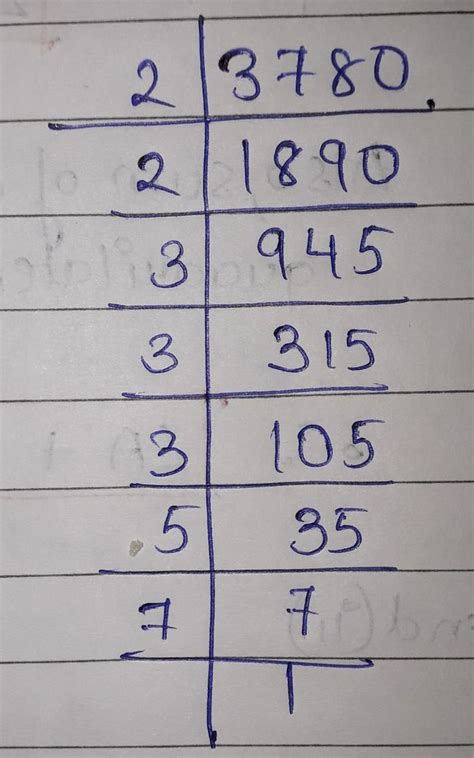 2 3780
2 1890
3 945
3 315
3 105
5 35
7 7
1